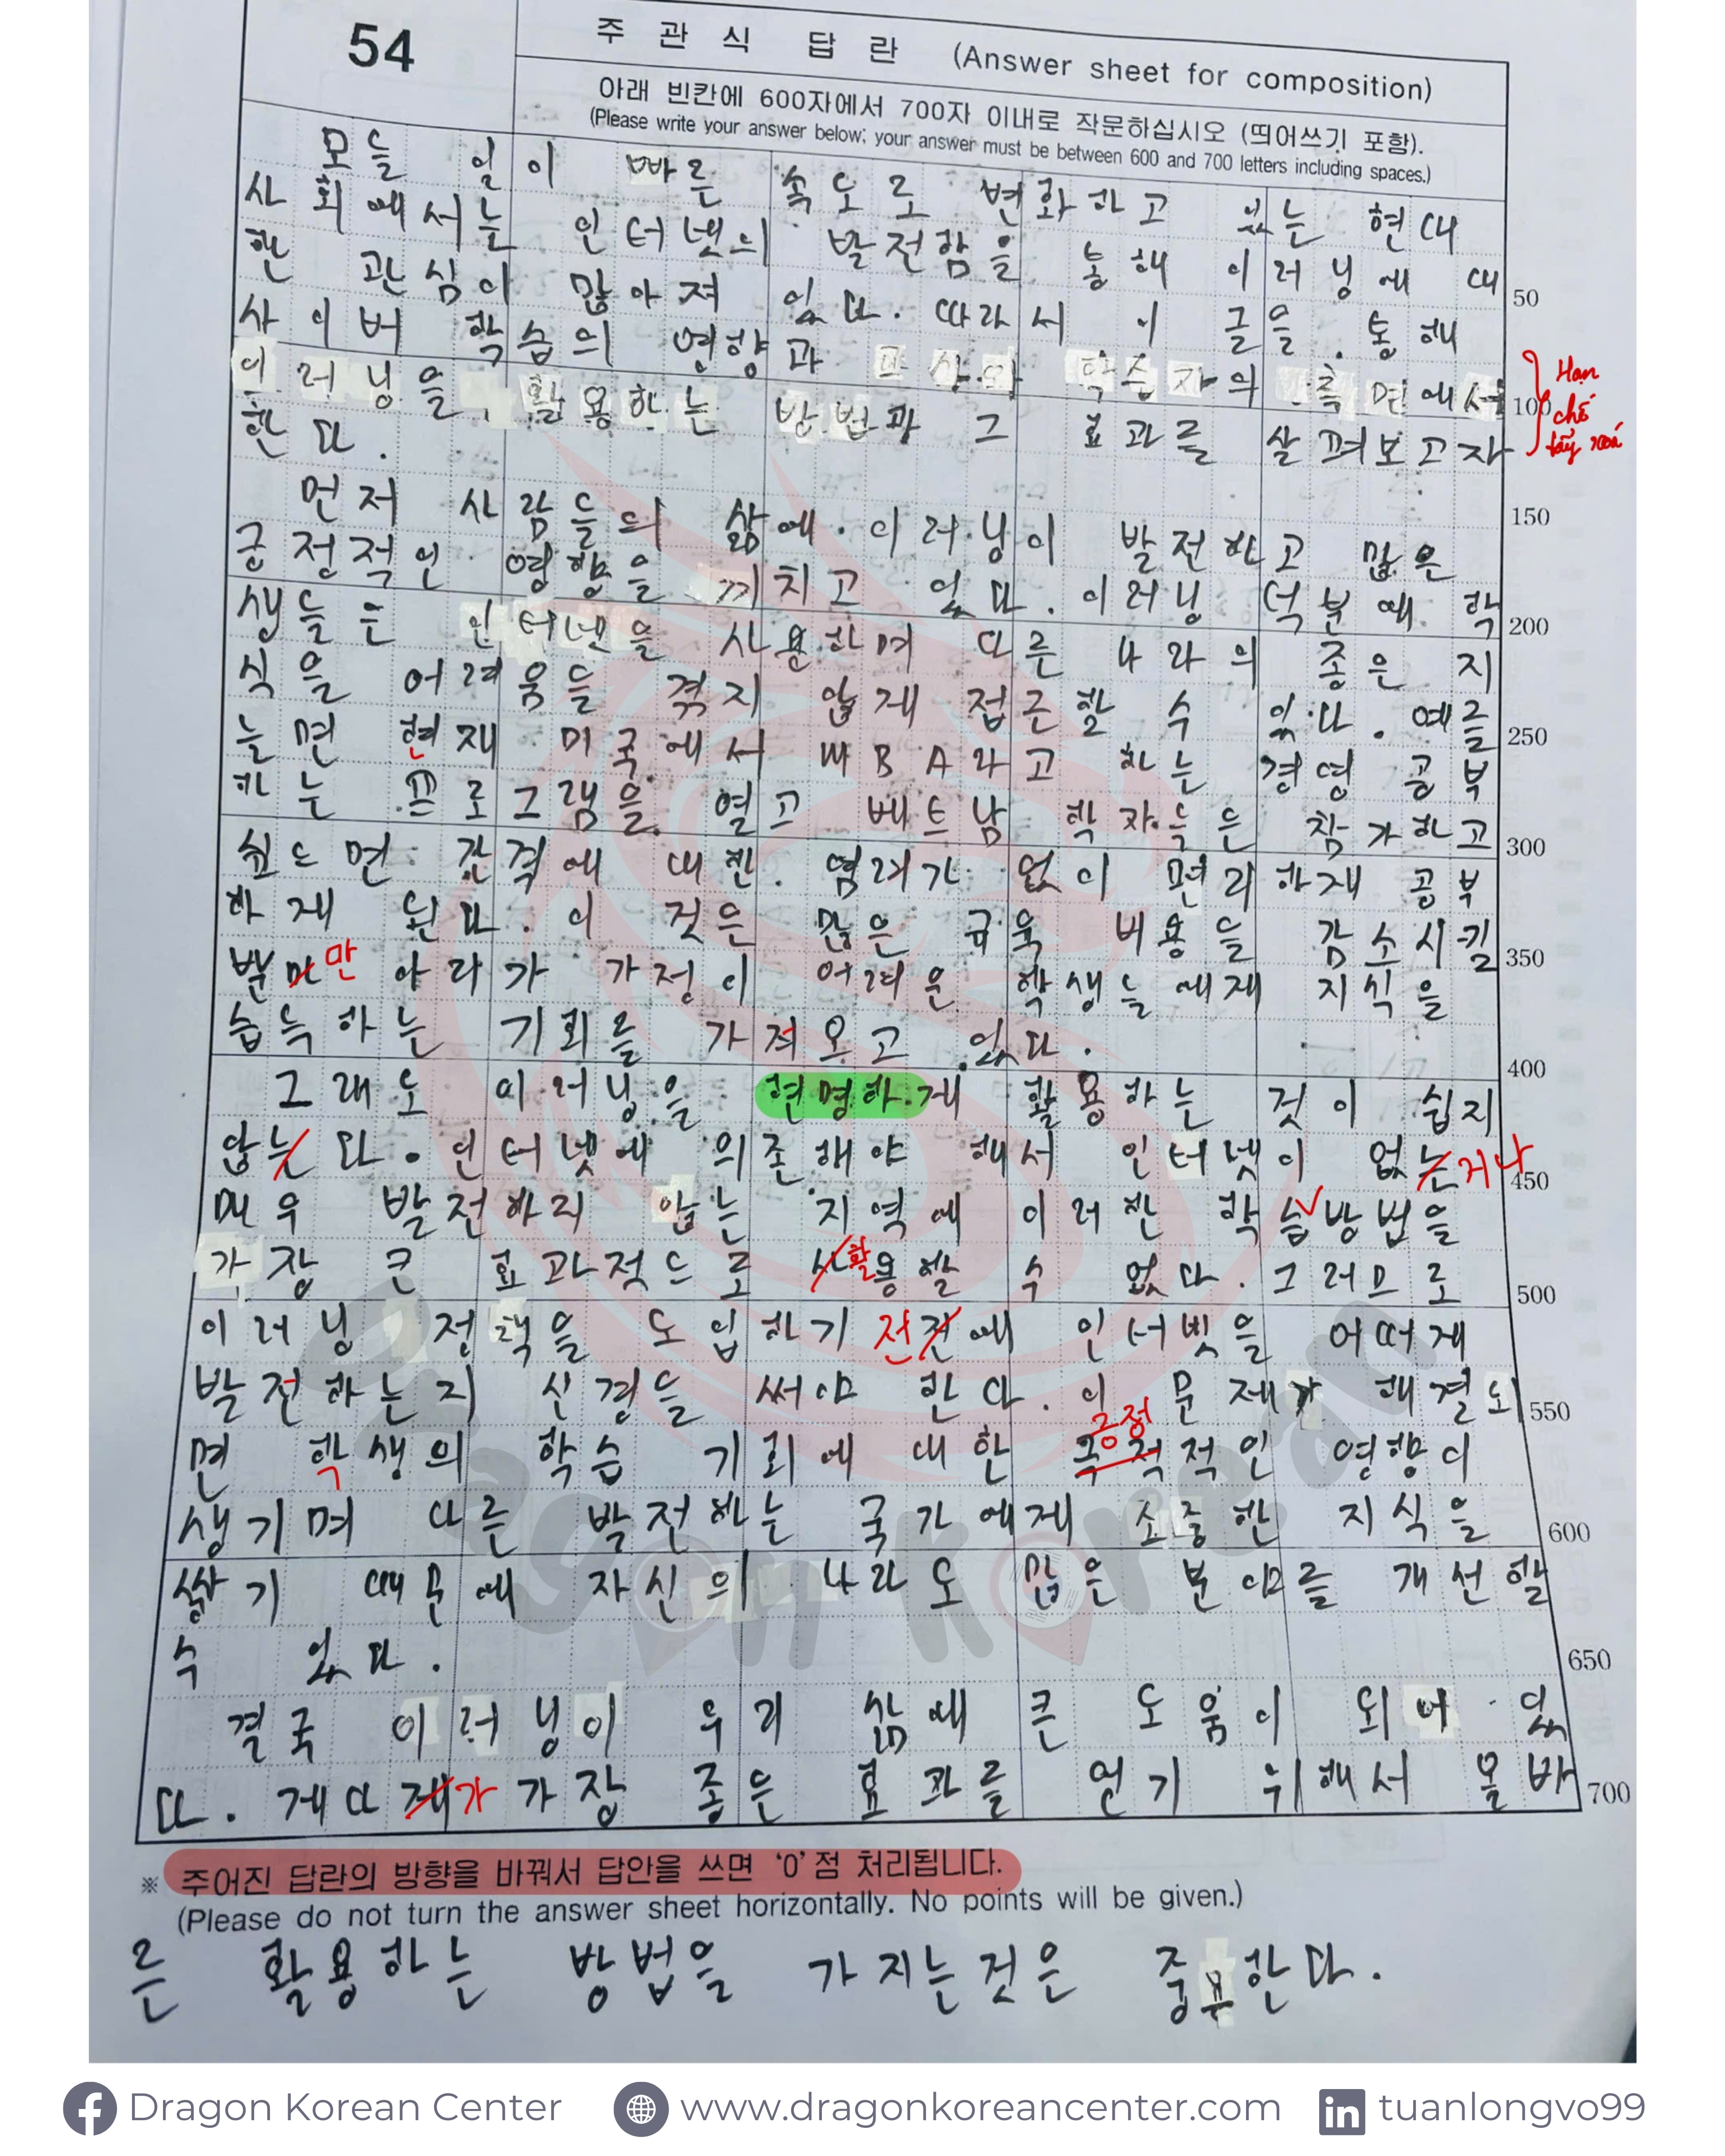 54
주 관 식 답 란 (Answer sheet for composition)
아래 빈칸에 600자에서 700자 이내로 작문하십시오 (띄어쓰기 포함).
(Please write your answer below; your answer must be between 600 and 700 letters including spaces.)
모들 일이 빠른 속도로 변화하고 있는 현대
사회에서는 인터넷의 발전함을 통해 이러닝에 대
한 관심이 많아져 있다. 따라서 이 글을 통해 50
사이버 학습의 영향과 학습자의 측면에서
이러닝을 활용하는 방법과 그 효과를 살펴보고자 100
한다.
Hạn
chế
tẩy xoá
먼저 사람들의 삶에 이러닝이 발전하고 많은 150
긍정적인 영향을 끼치고 있다. 이러닝 덕분에 학
생들은 인터넷을 사용하며 다른 나라의 좋은 지 200
식을 어려움들 겪지 않게 접근할 수 있다. 예를
늘면 현재 미국에서 MBA라고 하는 경영 공부 250
하는 프로그램을 열고 베트남 학자들은 참가하고
싶드면 간격에 대한 염려가 없이 편리하게 공부 300
하게 된다. 이 것은 많은 규육 비용들 감소시킬
뿐만 아라가 가정이 어려운 학생들에게 지식을 350
습득하는 기회를 가져오고 있다.
그래도 이러닝을 현명하게 활용하는 것이 쉽지 400
않는다. 인터넷에 의존해야 해서 인터넷이 없는거나
매우 발전하리 않는 지역에 이러한 학습방법을 450
가장 큰 효과적드로 사활용할 수 없다. 그러므로
이러닝 정책을 도입하기 전전에 인터넷을 어떠게 500
발전하는지 신경들 써야 한다. 이 문제가 해결되
면 학생의 학습 기회에 대한 긍정적인 영향이 550
생기며 다른 발전하는 국가에게 소중한 지식을
쌓기 때문에 자신의 나라도 많은 분야를 개선할 600
수 있다.
결국 이러닝이 우리 삶에 큰 도움이 되어 있 650
다. 게다게가 가장 좋은 효과를 얻기 위해서 올바
700
※ 주어진 답란의 방향을 바꿔서 답안을 쓰면 '0'점 처리됩니다.
(Please do not turn the answer sheet horizontally. No points will be given.)
른 활용하는 방법을 가지는것은 중요한다.
Dragon Korean
Dragon Korean Center
www.dragonkoreancenter.com
tuanlongvo99